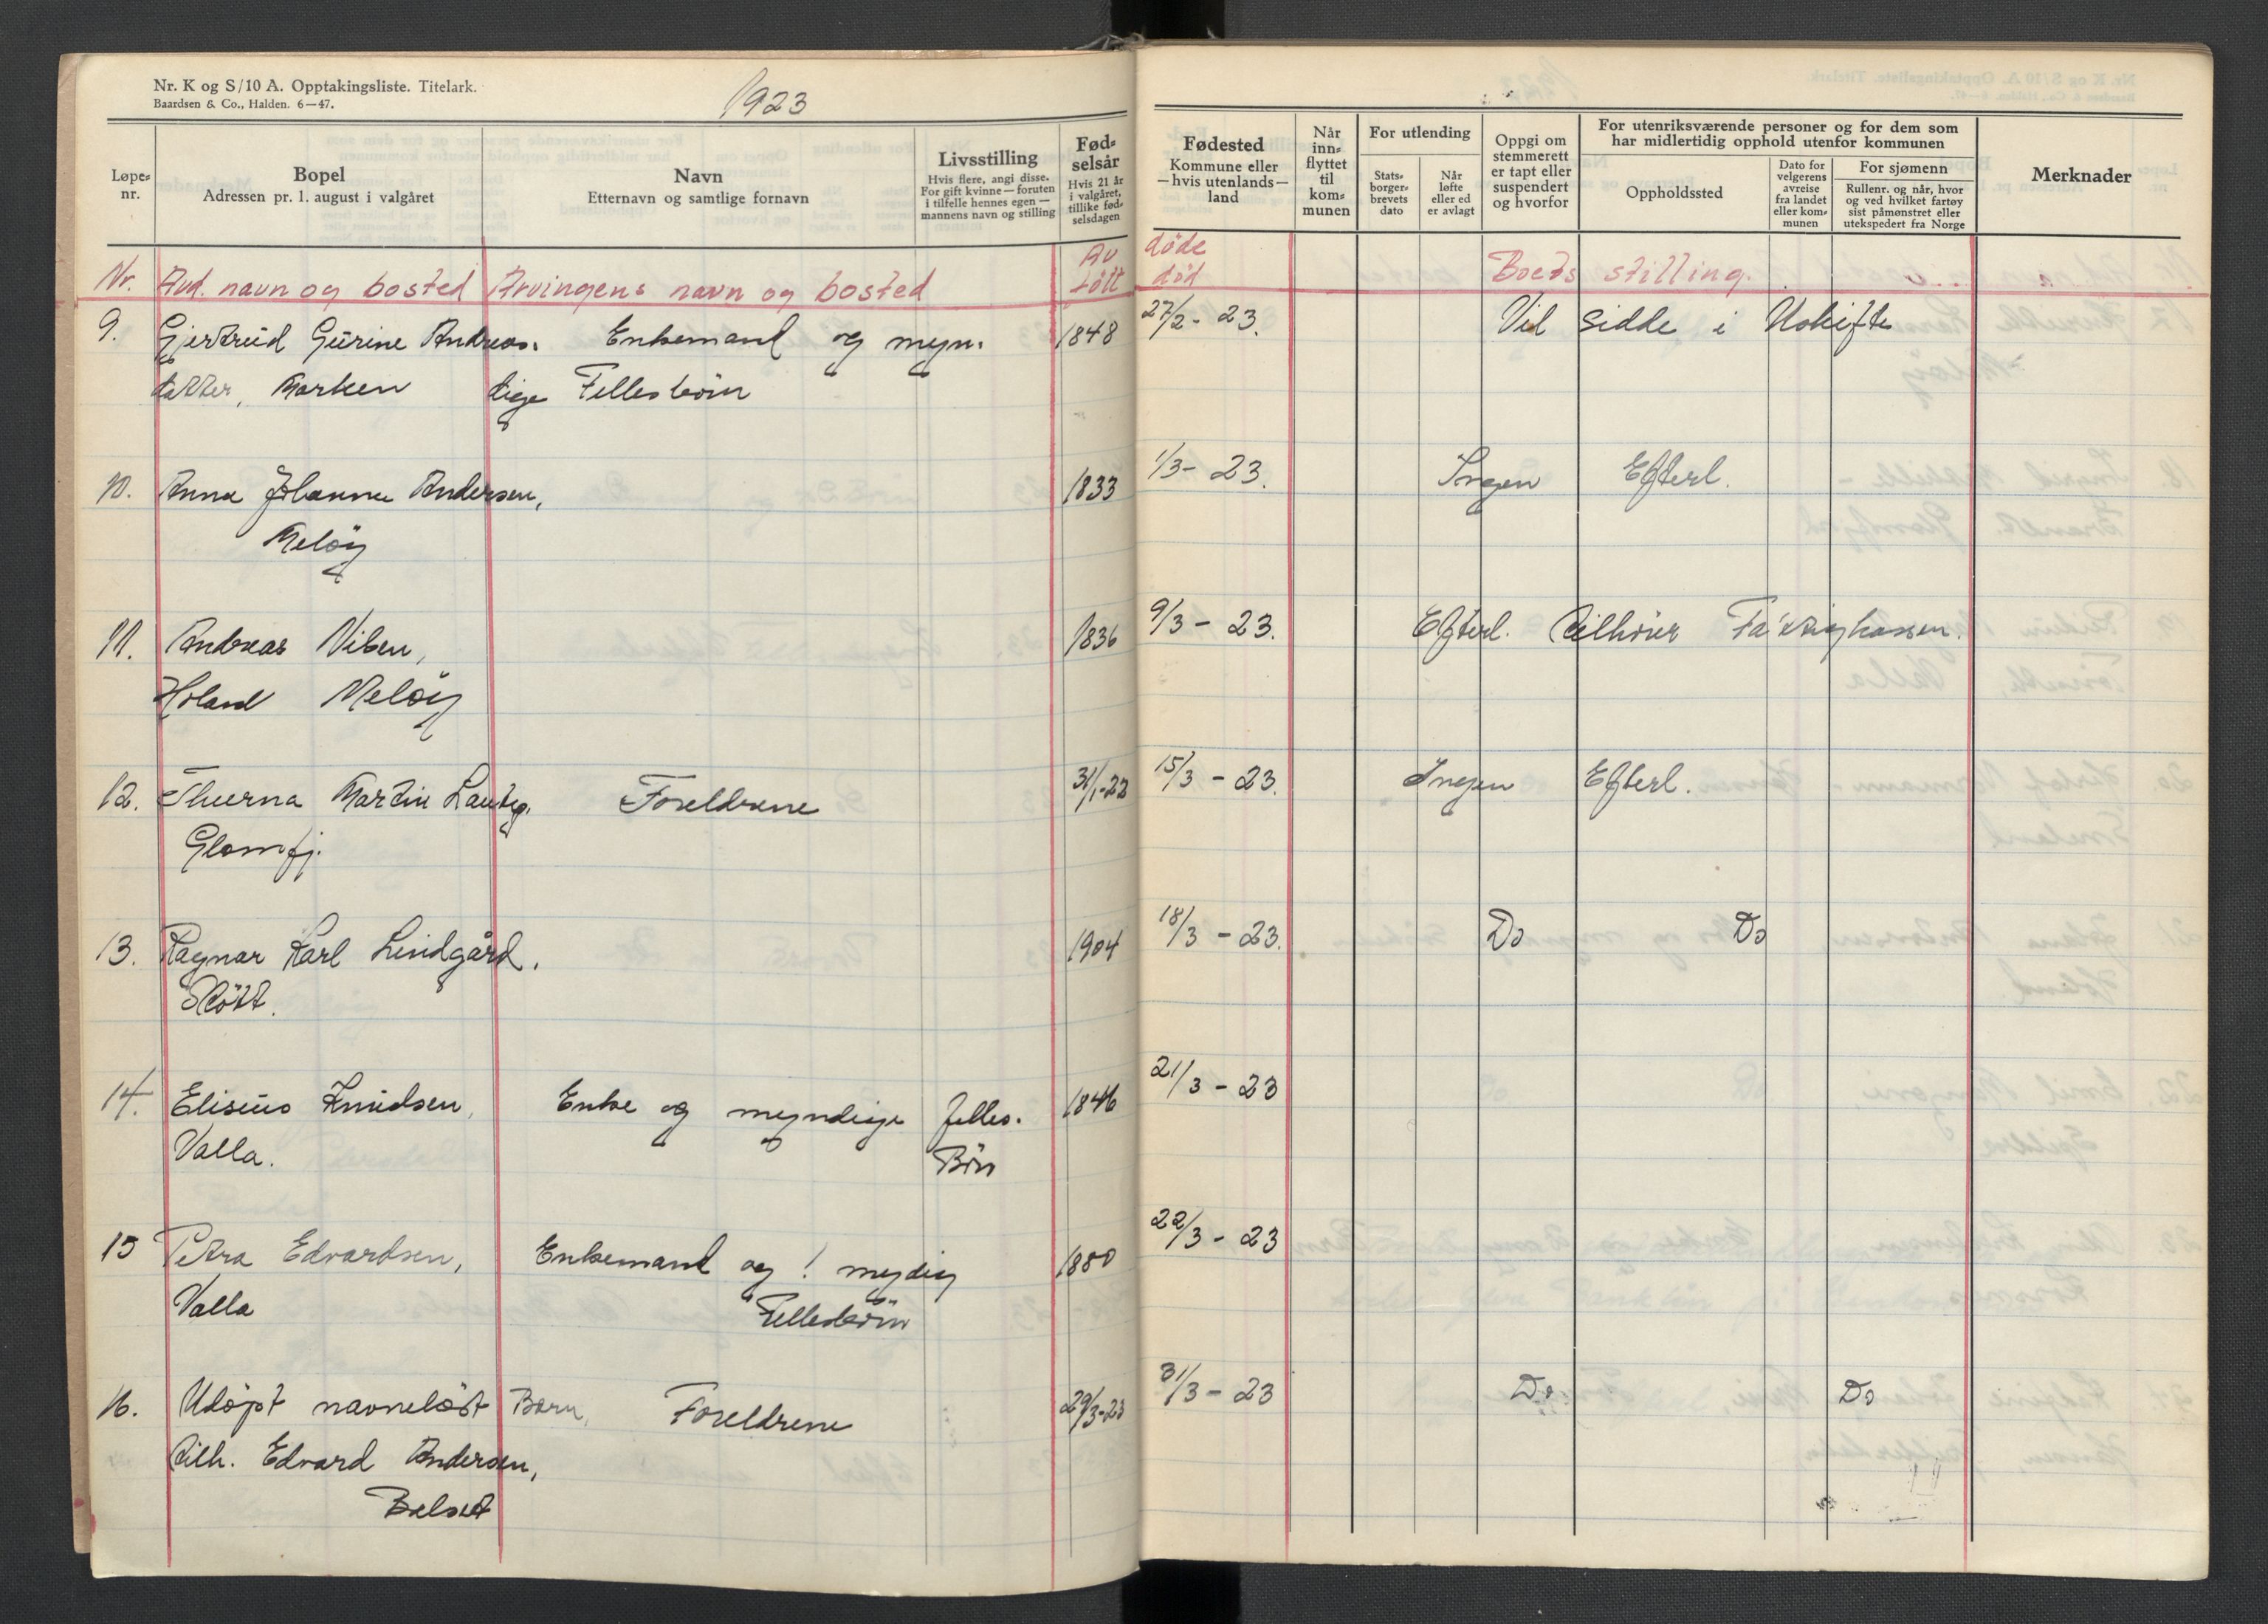 Nr. K og S/10 A. Opptakingsliste. Titelark.
Baardsen & Co., Halden. 6—47.
1923
Løpe-
nr.
Bopel
Adressen pr. 1. august i valgåret
Navn
Etternavn og samtlige fornavn
Livsstilling
Hvis flere, angi disse.
For gift kvinne — foruten
i tilfelle hennes egen —
mannens navn og stilling
Fød-
selsår
Hvis 21 år
i valgåret,
tillike fød-
selsdagen
Fødested
Kommune eller
— hvis utenlands —
land
Når
inn-
flyttet
til
kom-
munen
For utlending
Stats-
borger-
brevets
dato
Når
løfte
eller ed
er avlagt
Oppgi om
stemmerett
er tapt eller
suspendert
og hvorfor
For utenriksværende personer og for dem som
har midlertidig opphold utenfor kommunen
Oppholdssted
Dato for
velgerens
avreise
fra landet
eller kom-
munen
For sjømenn
Rullenr. og når, hvor
og ved hvilket fartøy
sist påmønstret eller
utekspedert fra Norge
Merknader
Av døde
Nr. Avd. navn og bosted Arvingens navn og bosted født død Boets stilling.
9. Gjertrud Gurine Andreas- Enkemand og myn- 1848 27/2 - 23. Vil sidde i Uskifte
datter, Marken dige Fellesbörn
10. Anna Johanna Andersen, 1833 1/3 - 23. Ingen Efterl.
Melöy
11. Andreas Nilsen, 1836 9/3 - 23. Efterl. tilhörer Fattigkassen.
Holand Melöy
12. Martin 31/1-22 15/3 - 23. Ingen Efterl.
Foreldrene
Glomfj.
13. Ragnar Karl Lindgård. 1904 18/3 - 23. Do Do
14. Eliseus Knudsen, Enke og myndige felles- 1846 21/3 - 23
Valla. Börn
15 Petra Edvardsen, Enkemand og 1 mydig 1880 22/3 - 23
Valla Fellesbörn
16. Udöpt navnelöst Barn, Foreldrene 29/3-23 31/3 - 23 Do. Do
tilh. Edvard Andersen,